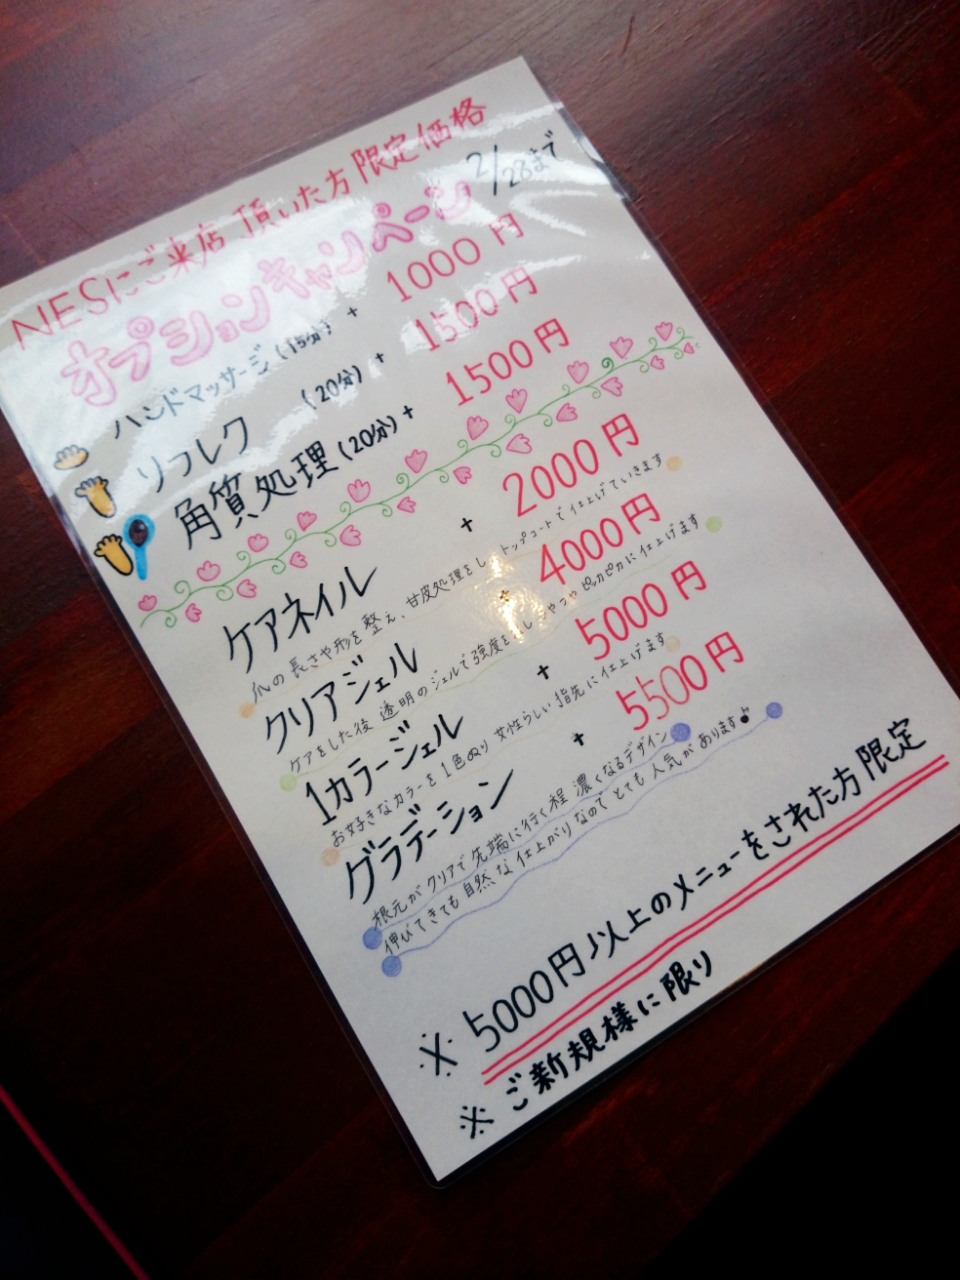 NESにご来店頂いた方限定価格
オプションキャンペーン 2/28まで
ハンドマッサージ(15分) + 1000円
リフレク (20分) + 1500円
角質処理(20分) + 1500円
ケアネイル + 2000円
爪の長さや形を整え、甘皮処理をしトップコートで仕上げていきます
クリアジェル + 4000円
ケアをした後 透明のジェルで強度を つやつやピッカピカに仕上げます
1カラージェル + 5000円
お好きなカラーを1色ぬり 女性らしい指先に仕上げます
グラデーション + 5500円
根元がクリアで先端に行く程 濃くなるデザイン
伸びてきても自然な仕上がりなので とても人気があります♪
※5000円以上のメニューをされた方限定
※ご新規様に限り